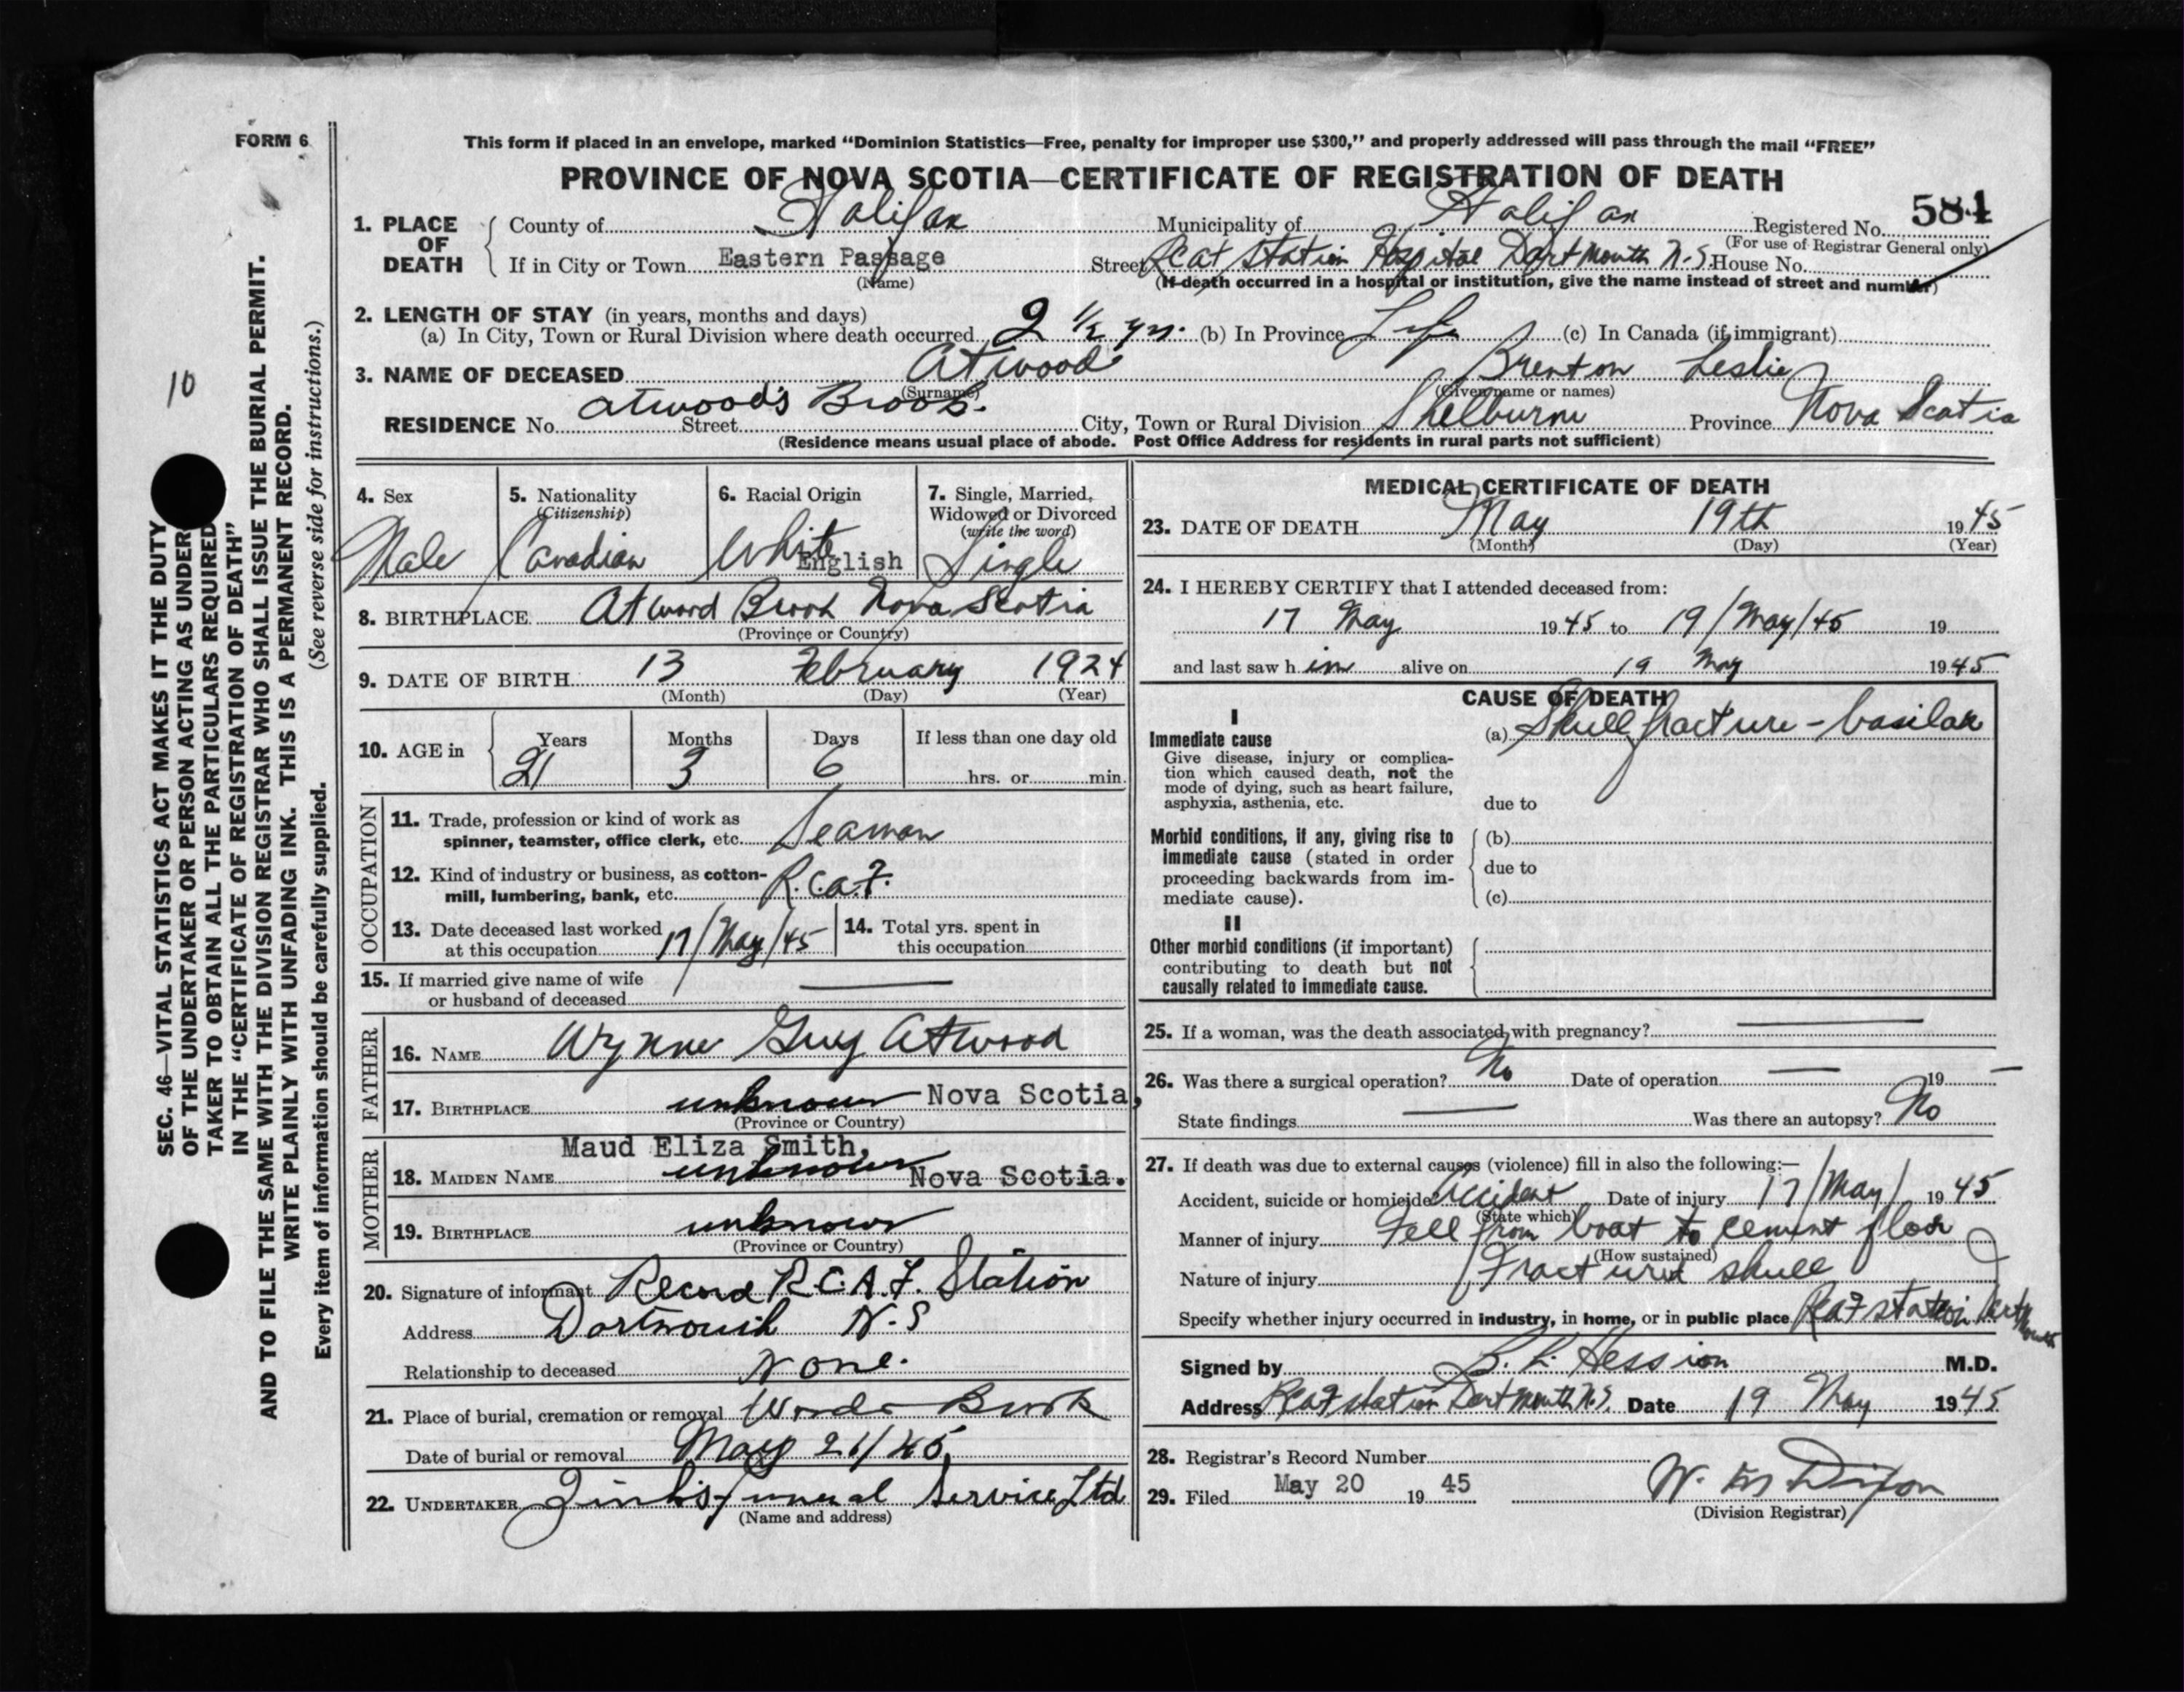 FORM 6
This form if placed in an envelope, marked "Dominion Statistics—Free, penalty for improper use $300," and properly addressed will pass through the mail "FREE"
PROVINCE OF NOVA SCOTIA—CERTIFICATE OF REGISTRATION OF DEATH
584
1. PLACE OF DEATH
County of Halifax Municipality of Halifax Registered No.
(For use of Registrar General only)
If in City or Town Eastern Passage Street Rcaf Station Hospital Dartmouth N.S. House No.
(Name) (If death occurred in a hospital or institution, give the name instead of street and number)
2. LENGTH OF STAY (in years, months and days)
(a) In City, Town or Rural Division where death occurred 2 ½ yrs. (b) In Province Life (c) In Canada (if immigrant)
3. NAME OF DECEASED Atwood Brenton Leslie
(Surname) (Given name or names)
RESIDENCE No. Atwood's Brook. Street City, Town or Rural Division Shelburne Province Nova Scotia
(Residence means usual place of abode. Post Office Address for residents in rural parts not sufficient)
4. Sex
Male
5. Nationality
(Citizenship)
Canadian
6. Racial Origin
White
English
7. Single, Married,
Widowed or Divorced
(write the word)
Single
8. BIRTHPLACE Atwood Brook Nova Scotia
(Province or Country)
9. DATE OF BIRTH 13 February 1924
(Month) (Day) (Year)
10. AGE in Years Months Days If less than one day old
21 3 6 hrs. or min.
OCCUPATION
11. Trade, profession or kind of work as
spinner, teamster, office clerk, etc. Seaman
12. Kind of industry or business, as cotton-
mill, lumbering, bank, etc. R.C.A.F.
13. Date deceased last worked
at this occupation 17/May/45
14. Total yrs. spent in
this occupation
15. If married give name of wife
or husband of deceased
FATHER
16. NAME Wynne Guy Atwood
17. BIRTHPLACE unknown Nova Scotia,
(Province or Country)
MOTHER
Maud Eliza Smith,
18. MAIDEN NAME unknown Nova Scotia.
19. BIRTHPLACE unknown
(Province or Country)
20. Signature of informant Record R.C.A.F. Station
Address Dartmouth N.S
Relationship to deceased None.
21. Place of burial, cremation or removal
Date of burial or removal May 21/45
22. UNDERTAKER Funeral Service Ltd
(Name and address)
MEDICAL CERTIFICATE OF DEATH
23. DATE OF DEATH May 19th 1945
(Month) (Day) (Year)
24. I HEREBY CERTIFY that I attended deceased from:
17 May 1945 to 19/May/45 19
and last saw h im alive on 19 May 1945
CAUSE OF DEATH
I
Immediate cause
Give disease, injury or complica-
tion which caused death, not the
mode of dying, such as heart failure,
asphyxia, asthenia, etc.
(a) Skull fracture - basilar
due to
Morbid conditions, if any, giving rise to
immediate cause (stated in order
proceeding backwards from im-
mediate cause).
(b)
due to
(c)
II
Other morbid conditions (if important)
contributing to death but not
causally related to immediate cause.
25. If a woman, was the death associated with pregnancy?
26. Was there a surgical operation? No Date of operation 19
State findings Was there an autopsy? No
27. If death was due to external causes (violence) fill in also the following:—
Accident, suicide or homicide? Accident Date of injury 17/May/ 1945
(State which)
Manner of injury Fell from boat to cement floor
(How sustained)
Nature of injury Fractured skull
Specify whether injury occurred in industry, in home, or in public place Rcaf station Dartmouth
Signed by B. L. Hession M.D.
Address Rcaf station Dartmouth N.S. Date 19 May 1945
28. Registrar's Record Number
29. Filed May 20 19 45 W. M Dixon
(Division Registrar)
10
SEC. 46—VITAL STATISTICS ACT MAKES IT THE DUTY
OF THE UNDERTAKER OR PERSON ACTING AS UNDER
TAKER TO OBTAIN ALL THE PARTICULARS REQUIRED
IN THE "CERTIFICATE OF REGISTRATION OF DEATH"
AND TO FILE THE SAME WITH THE DIVISION REGISTRAR WHO SHALL ISSUE THE BURIAL PERMIT.
WRITE PLAINLY WITH UNFADING INK. THIS IS A PERMANENT RECORD.
Every item of information should be carefully supplied. (See reverse side for instructions.)